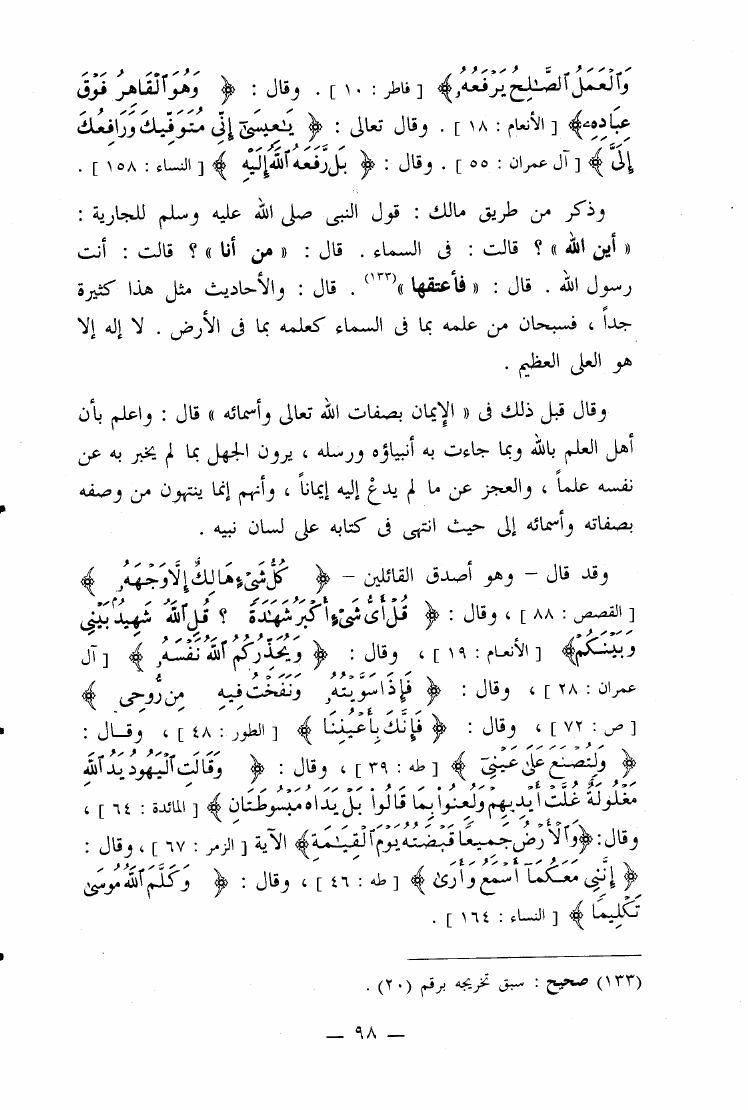 وَٱلْعَمَلُ ٱلصَّٰلِحُ يَرْفَعُهُۥ ﴾ [ فاطر : ١٠ ] . وقال : ﴿ وَهُوَ ٱلْقَاهِرُ فَوْقَ
عِبَادِهِۦ ﴾ [ الأنعام : ١٨ ] . وقال تعالى : ﴿ يَٰعِيسَىٰٓ إِنِّى مُتَوَفِّيكَ وَرَافِعُكَ
إِلَىَّ ﴾ [ آل عمران : ٥٥ ] . وقال : ﴿ بَل رَّفَعَهُ ٱللَّهُ إِلَيْهِ ﴾ [ النساء : ١٥٨ ] .
وذكر من طريق مالك : قول النبى صلى الله عليه وسلم للجارية :
« أين الله » ؟ قالت : فى السماء . قال : « من أنا » ؟ قالت : أنت
رسول الله . قال : « فأعتقها »(١٣٣) . قال : والأحاديث مثل هذا كثيرة
جداً ، فسبحان من علمه بما فى السماء كعلمه بما فى الأرض . لا إله إلا
هو العلى العظيم .
وقال قبل ذلك فى « الإيمان بصفات الله تعالى وأسمائه » قال : واعلم بأن
أهل العلم بالله وبما جاءت به أنبياؤه ورسله ، يرون الجهل بما لم يخبر به عن
نفسه علماً ، والعجز عن ما لم يدعْ إليه إيماناً ، وأنهم إنما ينتهون من وصفه
بصفاته وأسمائه إلى حيث انتهى فى كتابه على لسان نبيه .
وقد قال – وهو أصدق القائلين – ﴿ كُلُّ شَىْءٍ هَالِكٌ إِلَّا وَجْهَهُۥ ﴾
[ القصص : ٨٨ ] ، وقال : ﴿ قُلْ أَىُّ شَىْءٍ أَكْبَرُ شَهَٰدَةً ؟ قُلِ ٱللَّهُ شَهِيدٌۢ بَيْنِى
وَبَيْنَكُمْ ﴾ [ الأنعام : ١٩ ] ، وقال : ﴿ وَيُحَذِّرُكُمُ ٱللَّهُ نَفْسَهُۥ ﴾ [ آل
عمران : ٢٨ ] ، وقال : ﴿ فَإِذَا سَوَّيْتُهُۥ وَنَفَخْتُ فِيهِ مِن رُّوحِى ﴾
[ ص : ٧٢ ] ، وقال : ﴿ فَإِنَّكَ بِأَعْيُنِنَا ﴾ [ الطور : ٤٨ ] ، وقـال :
﴿ وَلِتُصْنَعَ عَلَىٰ عَيْنِىٓ ﴾ [ طه : ٣٩ ] ، وقال : ﴿ وَقَالَتِ ٱلْيَهُودُ يَدُ ٱللَّهِ
مَغْلُولَةٌ غُلَّتْ أَيْدِيهِمْ وَلُعِنُوا۟ بِمَا قَالُوا۟ بَلْ يَدَاهُ مَبْسُوطَتَانِ ﴾ [ المائدة : ٦٤ ] ،
وقال : ﴿ وَٱلْأَرْضُ جَمِيعًا قَبْضَتُهُۥ يَوْمَ ٱلْقِيَٰمَةِ ﴾ الآية [ الزمر : ٦٧ ] ، وقال :
﴿ إِنَّنِى مَعَكُمَآ أَسْمَعُ وَأَرَىٰ ﴾ [ طه : ٤٦ ] ، وقال : ﴿ وَكَلَّمَ ٱللَّهُ مُوسَىٰ
تَكْلِيمًا ﴾ [ النساء : ١٦٤ ] .
(١٣٣) صحيح : سبق تخريجه برقم (٢٠) .
— ٩٨ —